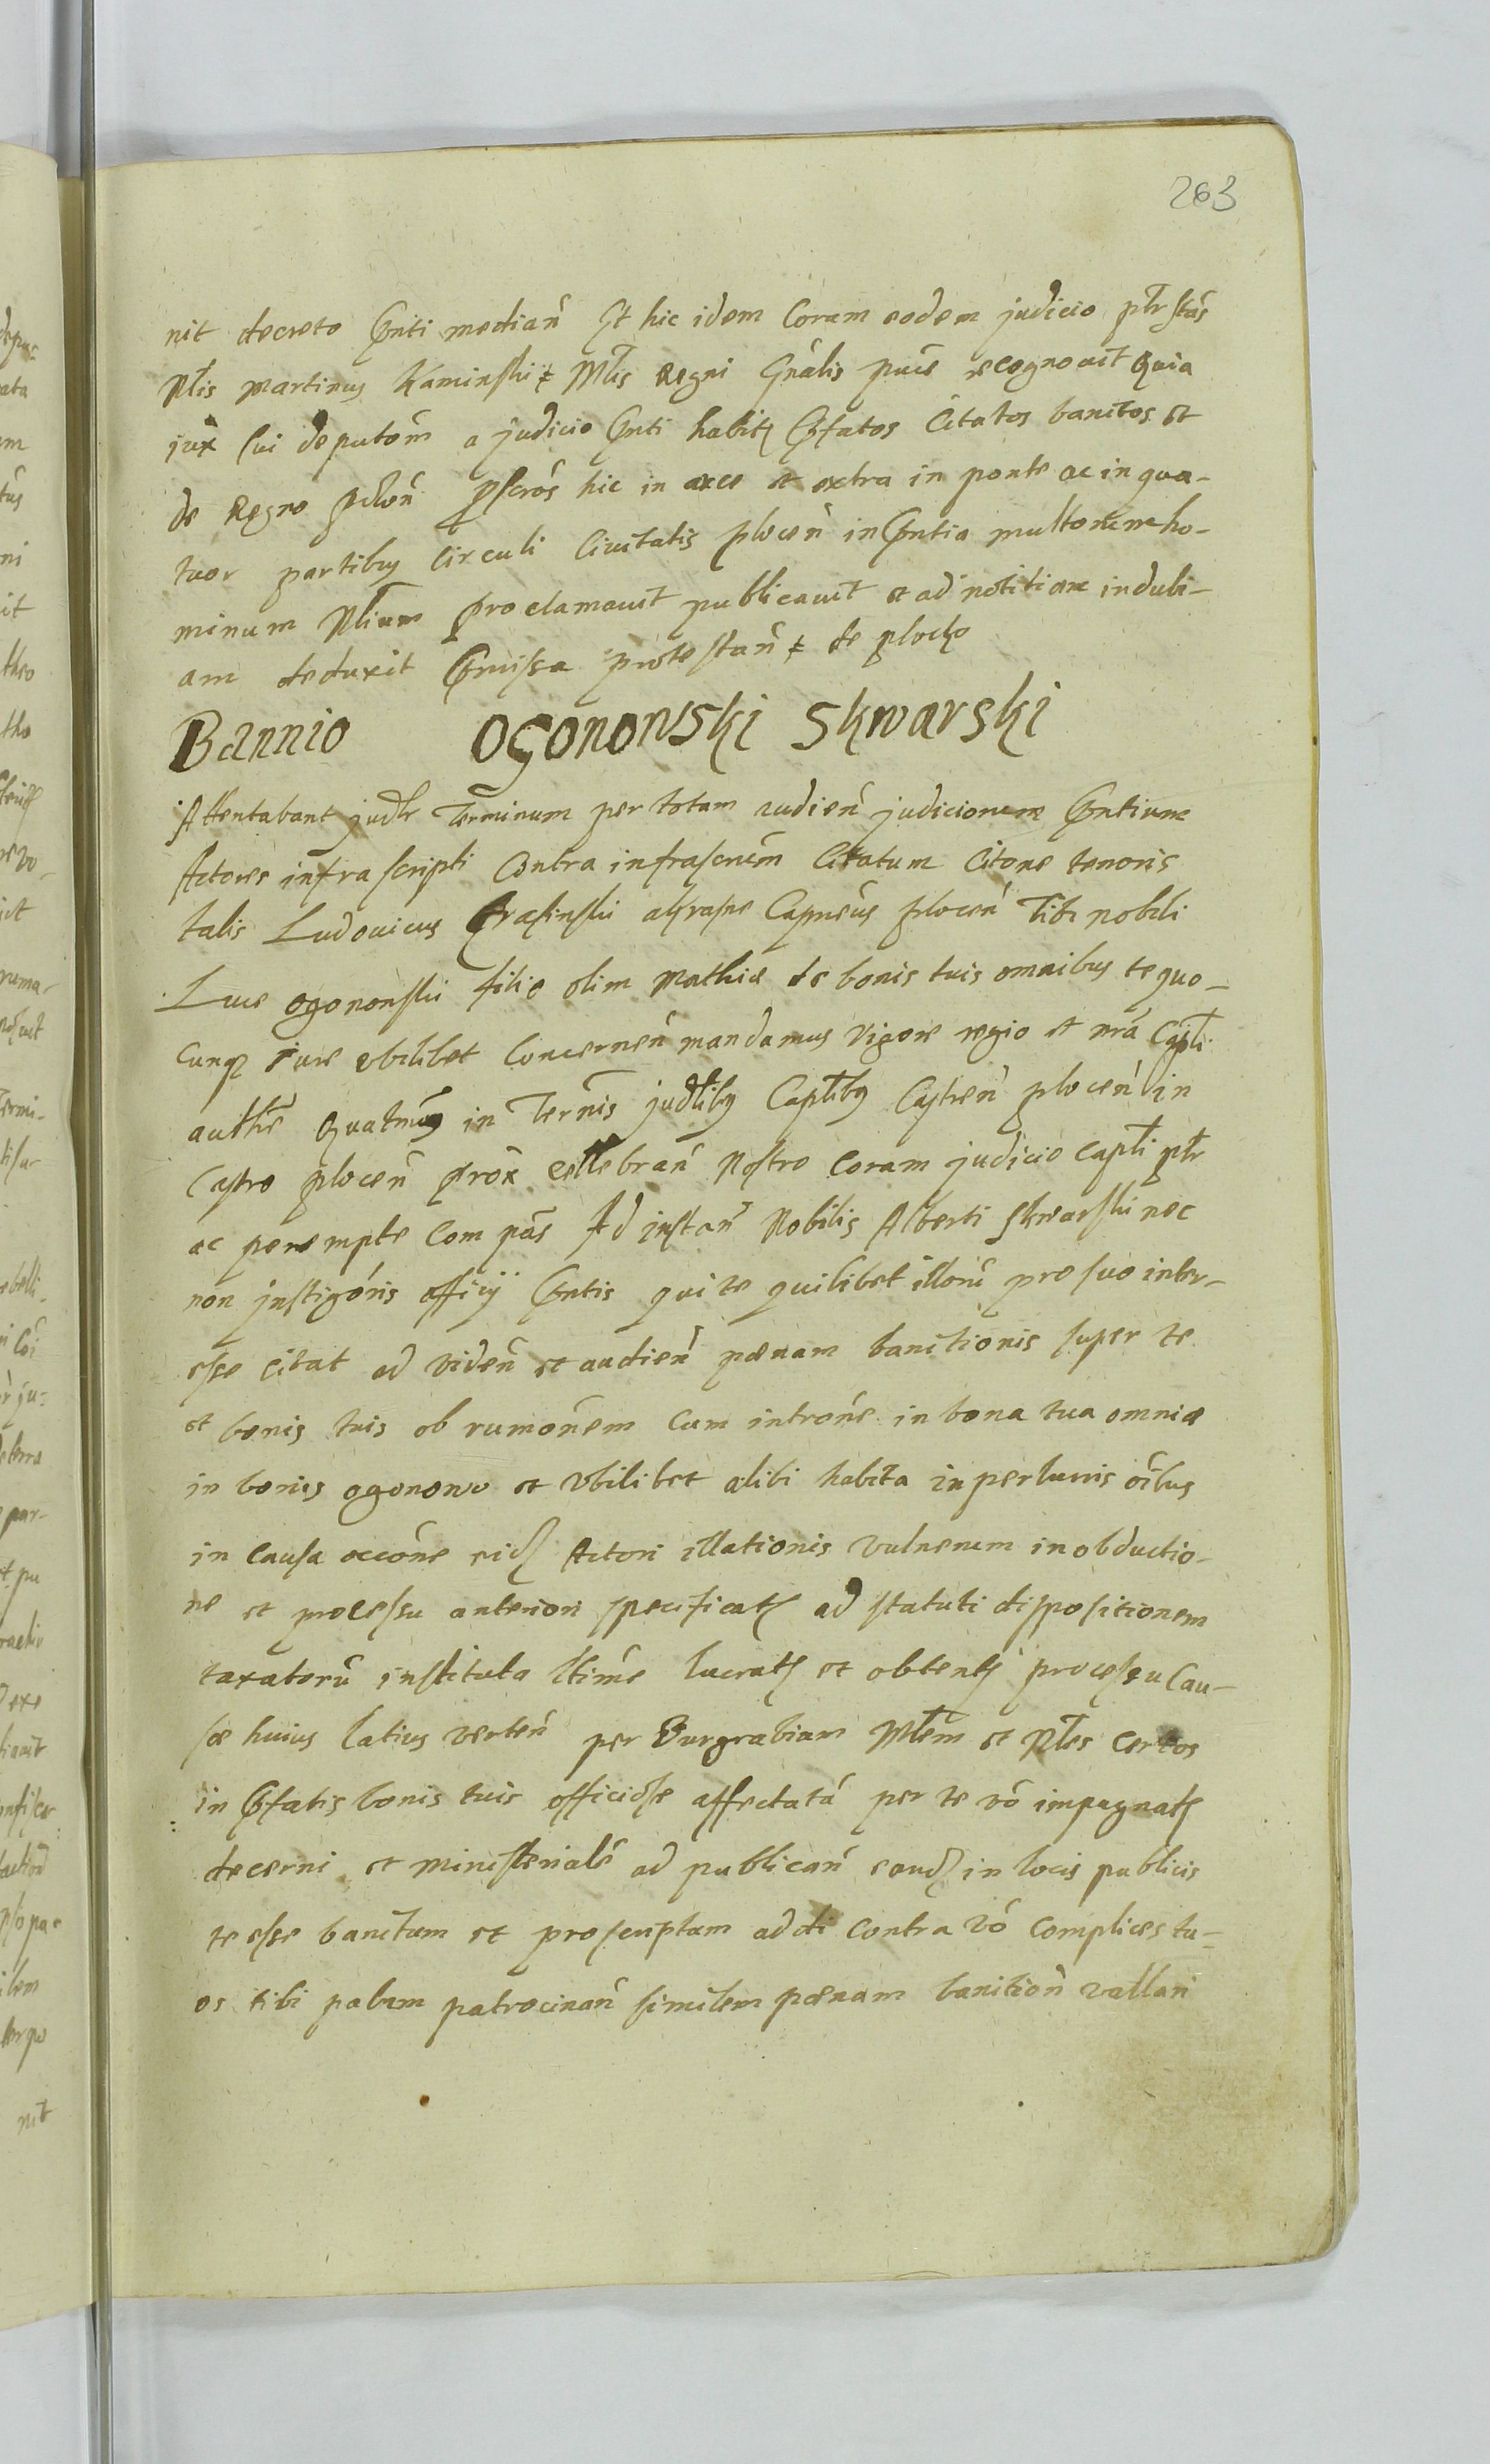 263
nit decreto Pnti median Et hic idem Coram eodem judicio pltr stas
Nlis Martinus Kaminski & Mlis Regni Gnalis puce recognouit Quia
jux sui deputom a judicio Pnti habitz Pfatos Citatos banitos et
de Regno Plon Pscros hic in arce et extra in ponte ac in qua-
tuor partibus Circuli Ciuitatis plocen in Pntia multorum ho-
minum Nlium Proclamauit publicauit et ad notitiam indubi-
am deduxit Pmissa protestan & de plocko
Bannio Ogonowski Skwarski
Attentabant judlr Terminum per totam audien judiciorum Pntium
Actores infra scripti Contra infrascrum Citatum Citone tenoris
talis Ludouicus Krasinski alsrasne Capneus plocen Tibi nobili
Luce ogononski filio olim Mathiæ de bonis tuis omnibus te quo-
cunqz iure vbilibet Concernen mandamus vigore regio et nra Capli
authe Quatnus in Ternis judlibus Captlibus Castren plocen in
Castro plocen prox cellebran Nostro Coram judicio Captli pltr
ac perempte Compas Ad instan Nobilis Alberti Skwarski nec
non jnstigoris officij Pntis qui te quilibet illoru pro suo inter-
esse Citat ad viden et audien pœnam banitionis super te
et bonis tuis ob rumonem Cum introne in bona tua omnia
in bonis ogonowo et vbilibet alibi habita in perlucris oibus
in Causa occone eidz Actori illationis vulnerum in obductio-
ne et processu anteriori specificatz ad statuti dispositionem
taxatoru instituta ltime lucratz et obtentz processu Cau-
sæ huius latius verten per Burgrabiam Mlem et Nles Certos
in Pfatis bonis tuis officiose affectata per te vo impugnatz
decerni et ministeriale ad publican eandz in locis publicis
te esse banitum et proscriptum addi Contra vo Complices tu-
os tibi palam patrocinan similem pœnam banition vallari